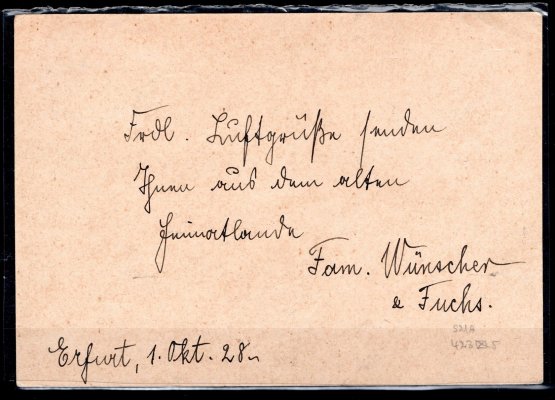 Frdl. Luftgrüße senden
Ihnen aus dem alten
Heimatlande
Fam. Wünscher
& Fuchs.
Erfurt, 1. Okt. 28.